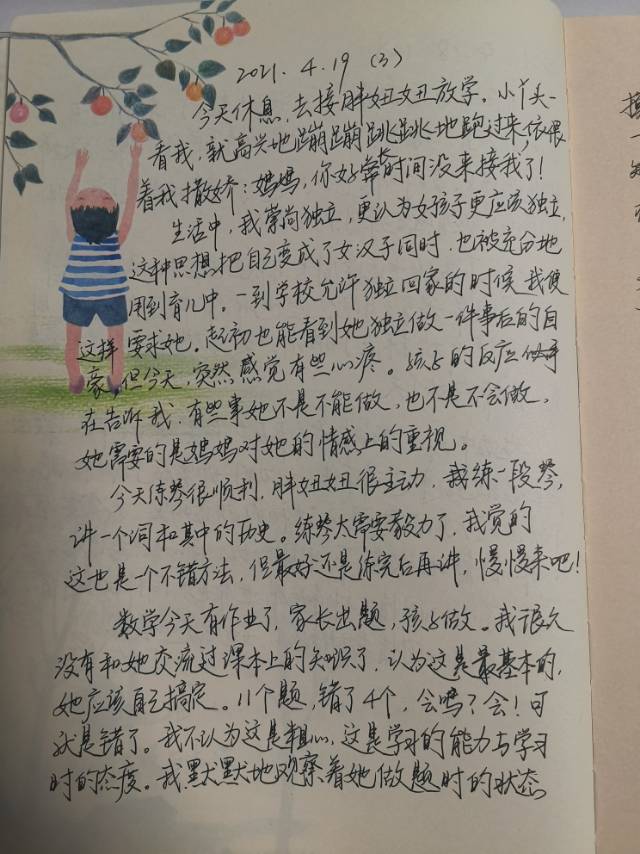 2021.4.19 (3)
今天休息,去接胖妞妞放学。小丫头一
看我,就高兴地蹦蹦跳跳地跑过来,依偎
着我撒娇:妈妈,你好长时间没来接我了!
生活中,我崇尚独立,更认为女孩子更应该独立,
这种思想把自己变成了女汉子同时,也被充分地
用到育儿中。一到学校允许独立回家的时候,我便
这样要求她。起初也能看到她独立做一件事后的自
豪,但今天,突然感觉有些心疼。孩子的反应似乎
在告诉我,有些事她不是不能做,也不是不会做,
她需要的是妈妈对她的情感上的重视。
今天练琴很顺利,胖妞妞很主动,我练一段琴,
讲一个词和其中的历史。练琴太需要毅力了,我觉的
这也是一个不错方法,但最好还是练完后再讲,慢慢来吧!
数学今天有作业了,家长出题,孩子做。我很久
没有和她交流过课本上的知识了,认为这是最基本的,
她应该自己搞定。11个题,错了4个,会吗?会!可
就是错了。我不认为这是粗心,这是学习的能力与学习
时的态度。我默默地观察着她做题时的状态